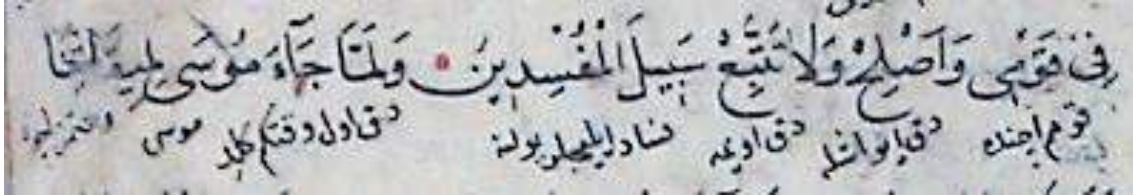 فِى قَوْمِى وَاَصْلِحْ وَلَا تَتَّبِعْ سَبِيلَ الْمُفْسِدِينَ وَلَمَّا جَآءَ مُوسٰى لِمِيقَاتِنَا
قومم ايچنده دقى ايو اشله دقى اويمه فساد ايليجيلر يولنه دقى اول وقتكم كلدى موسى